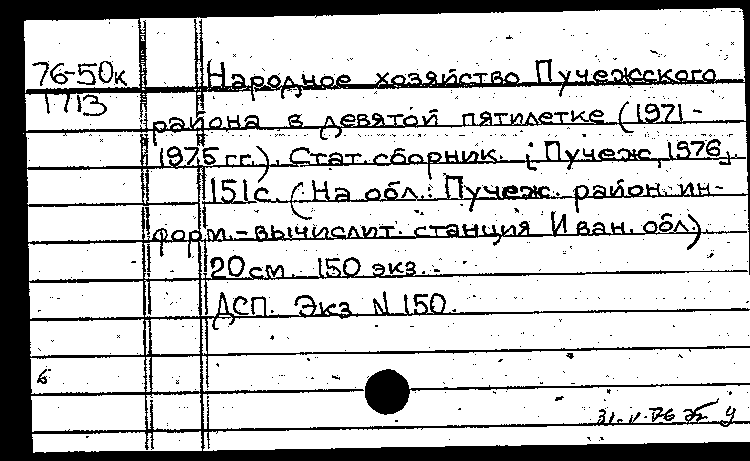 76-50к
1713
Народное хозяйство Пучежского
района в девятой пятилетке (1971-
1975 гг.). Стат. сборник. [Пучеж, 1976].
151с. (На обл.: Пучеж. район. ин-
форм.-вычислит. станция Иван. обл.)
20см. 150 экз.
ДСП. Экз N 150.
б
31.V.76